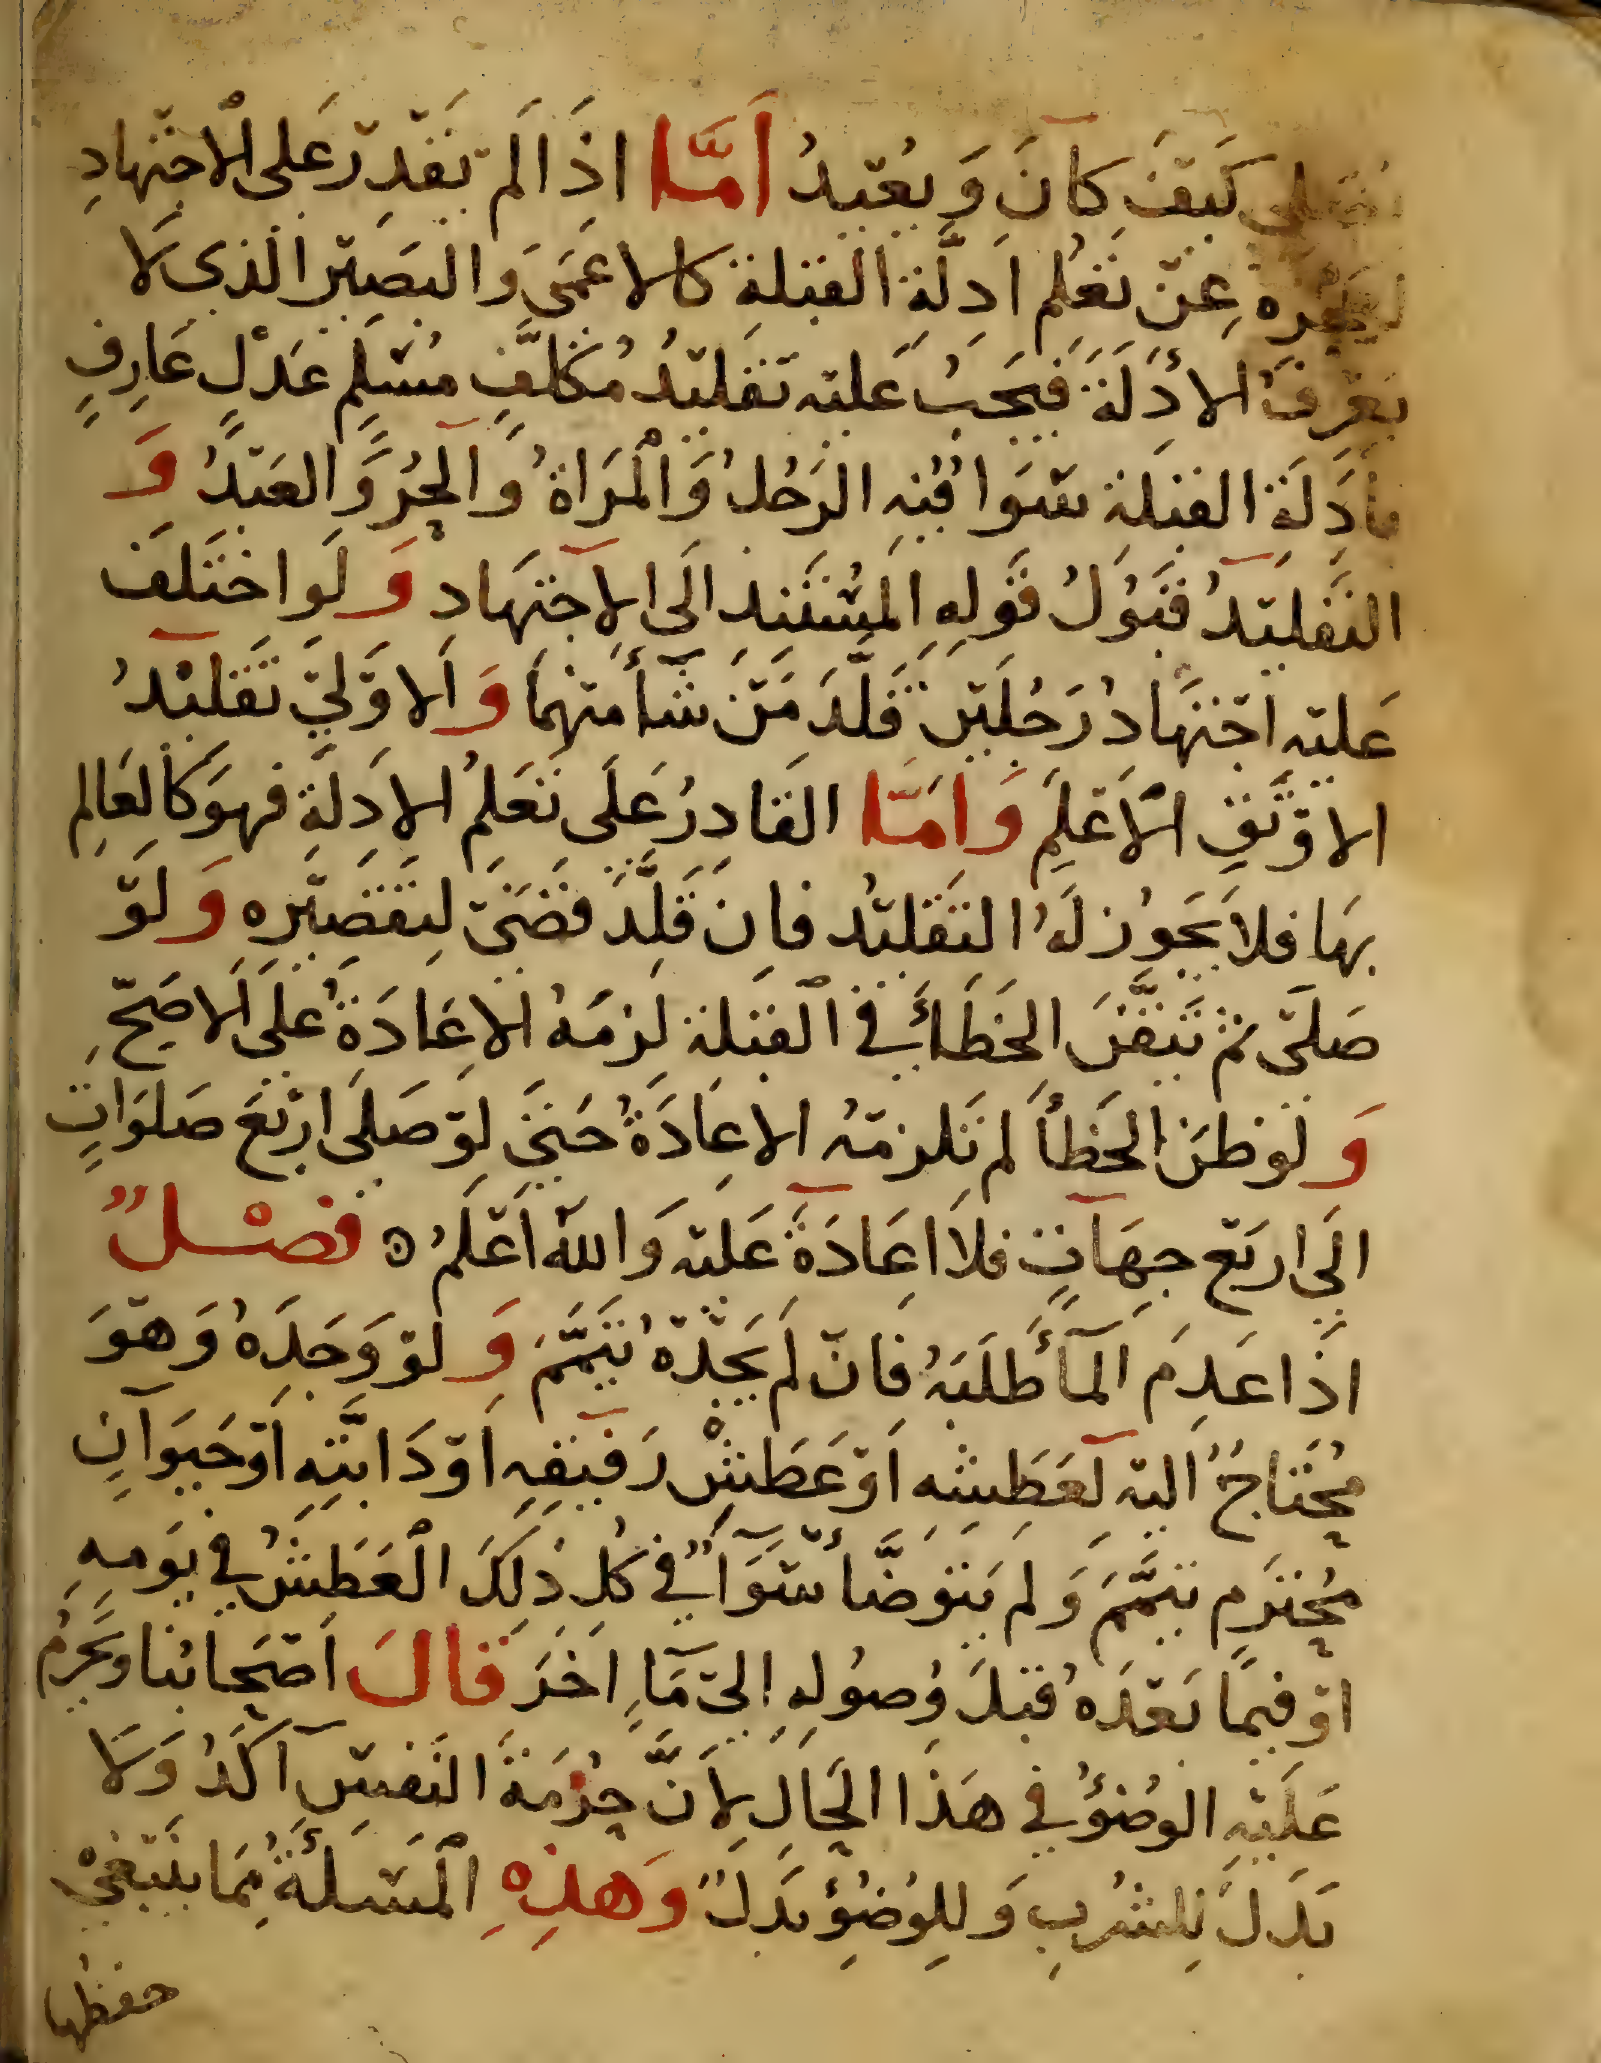 يصلى كيف كان ويعيد أما اذا لم يقدر على الاجتهاد
لعجزه عن تعلم ادلة القبلة كالاعمى والبصير الذى لا
يعرف الأدلة فيجب عليه تقليد مكلف مسلم عدل عارف
بادلة القبلة سوا فيه الرجل والمراة والحر والعبد و
التقليد قبول قوله المستند الى الاجتهاد ولو اختلف
عليه اجتهاد رجلين قلد من شآء منهما والاولى تقليد
الاوثق الأعلم واما القادر على تعلم الادلة فهو كالعالم
بها فلا يجوز له التقليد فان قلد قضى لتقصيره ولو
صلى ثم تيقن الخطأ في القبلة لزمه الاعادة على الاصح
ولو ظن الخطأ لم تلزمه الاعادة حتى لو صلى اربع صلوات
الى اربع جهات فلا اعادة عليه والله أعلم فصل
اذا عدم المآء طلبه فان لم يجده تيمم ولو وجده وهو
محتاج اليه لعطشه او عطش رفيقه او دابته او حيوان
محترم تيمم ولم يتوضأ سوآء في كل ذلك العطش في يومه
او فيما بعده قبل وصوله الى مآء اخر قال اصحابنا ويحرم
عليه الوضوء في هذا الحال لان حرمة النفس آكد ولا
بدل للشرب وللوضوء بدل وهذه المسألة مما ينبغي
حفظها